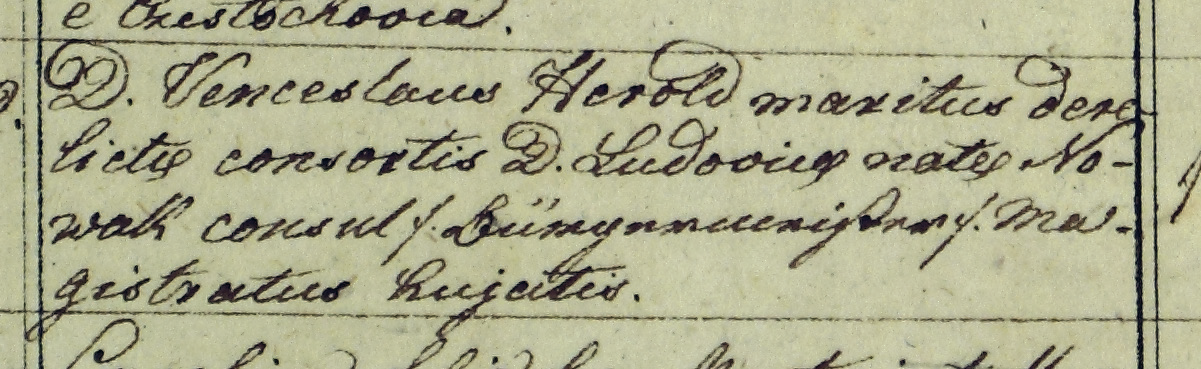 e Czestochovia.
D. Venceslaus Herold maritus dere-
lictę consortis D. Ludovicę natę No-
wak consul /. Bürgermeister /. Ma-
gistratus hujatis.